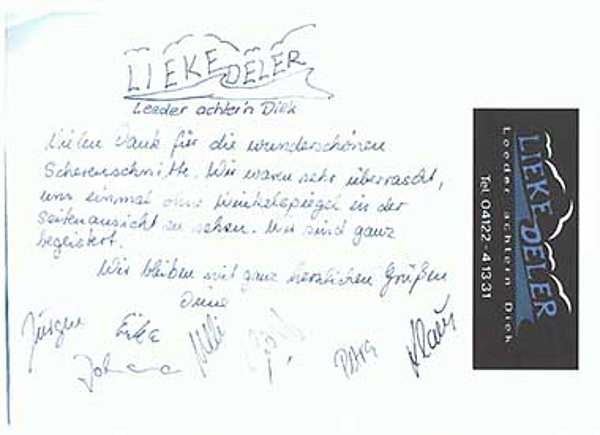 LIEKEDELER
Leeder achtern Diek
Vielen Dank für die wunderschönen
Scherenschnitte. Wir waren sehr überrascht,
uns einmal ohne Winkelspiegel in der
Seitenansicht zu sehen. Wir sind ganz
begeistert.
Wir bleiben mit ganz herzlichen Grüßen
Jürgen
Klaus
LIEKEDELER
Leeder achtern Diek
Tel. 04122 - 41331